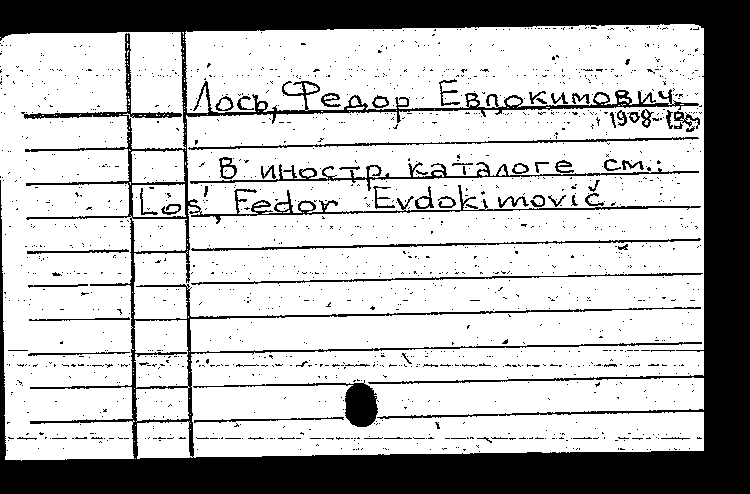 Лось, Федор Евдокимович
1908-
В иностр. каталоге см.:
Los', Fedor Evdokimovič.